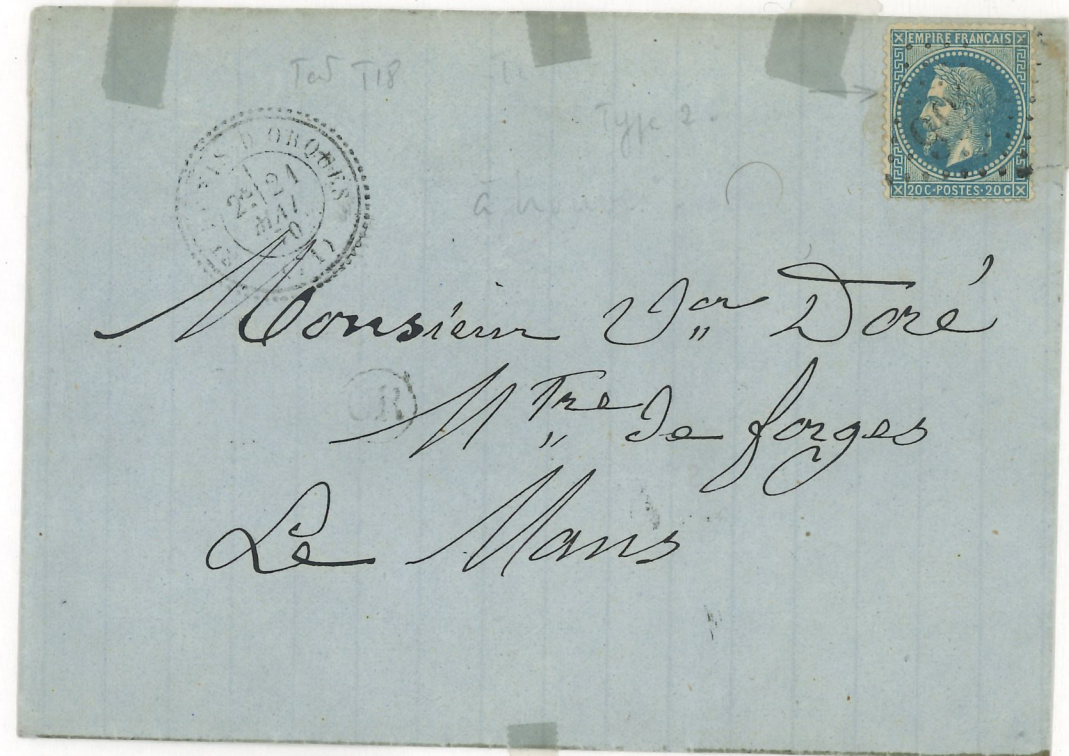 EMPIRE FRANÇAIS
20 C · POSTES · 20 C
Tad T18
Type 2.
D'ORQUES
21
MAI
70
Monsieur Vor Doré
OR
Mtre de forges
Le Mans